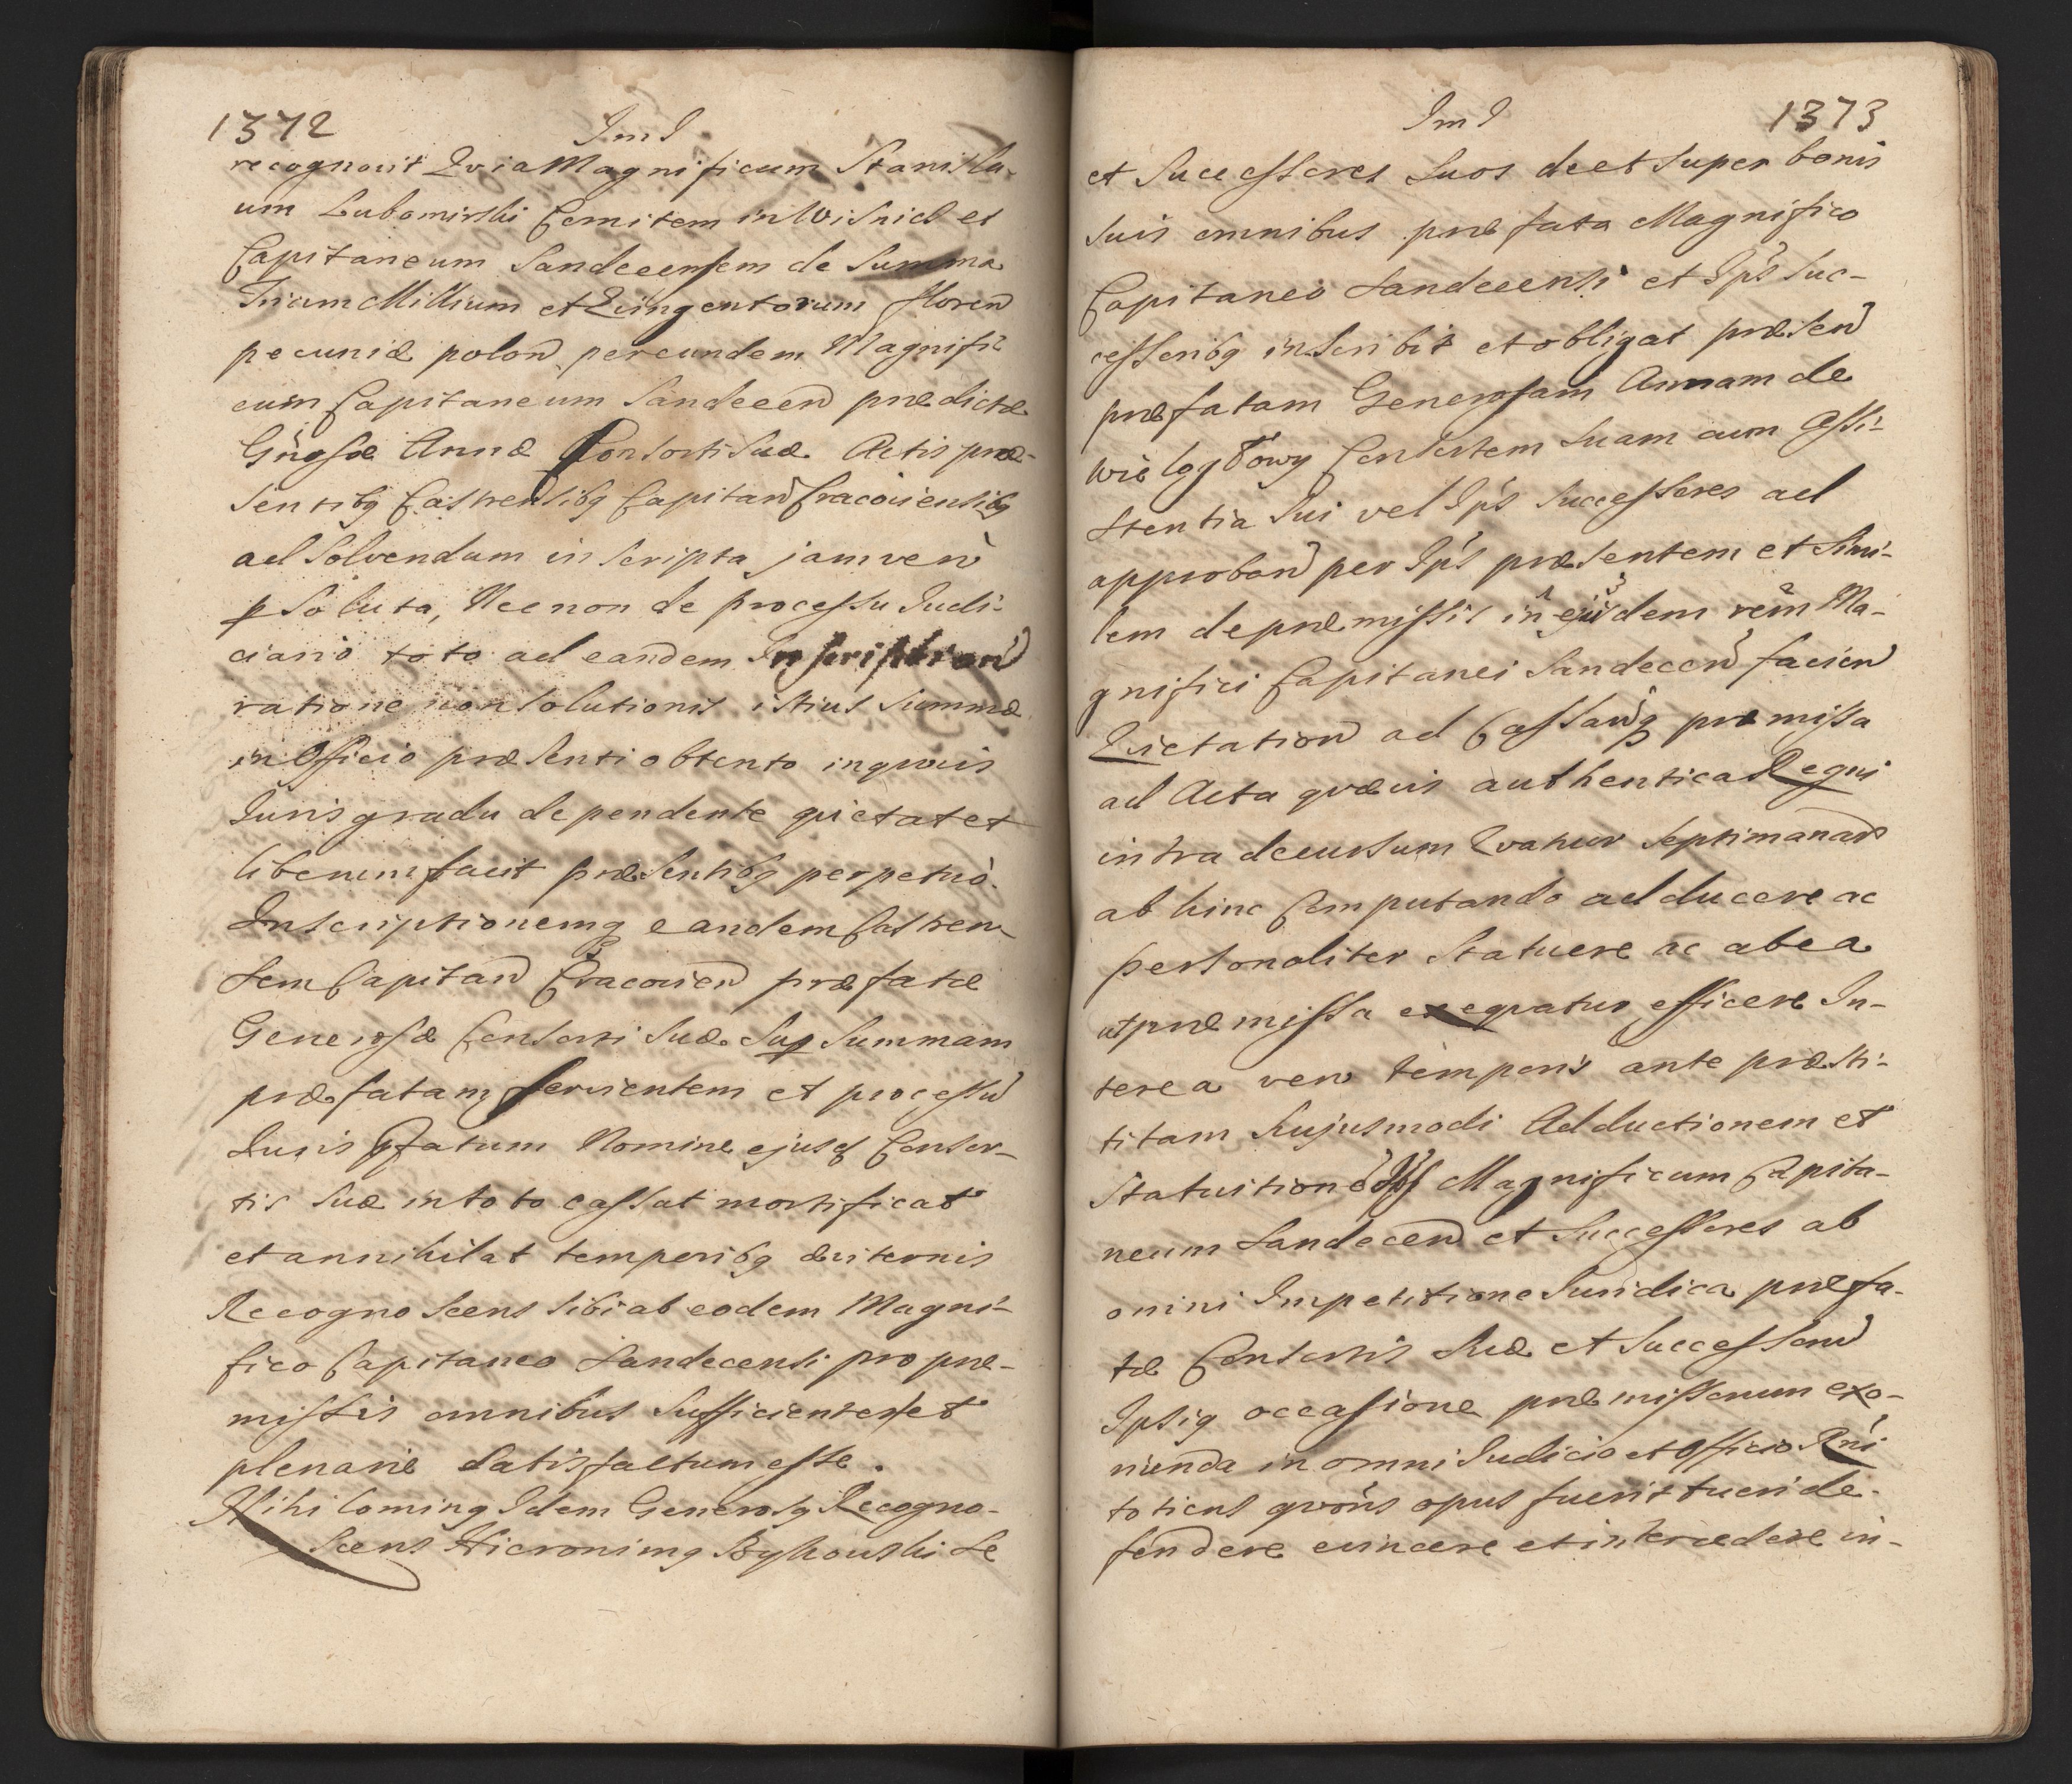 1372
Im I
recognovit Qvia Magnificum Stanisla-
um Lubomirski Comitem in Wisnicz et
Capitaneum Sandecensem de Summa
Trium Millium et Quingentorum floren
pecuniæ polon per eundem Magnifi-
cum Capitaneum Sandecen prædictæ
Gnosæ Annæ Consorti Suæ Actis præ-
sentibq Castrensibq Capitan Cracoviensibq
ad Solvendum inscripta jam vero
p Soluta, Necnon de processu Judi-
ciario toto ad eandem Inscription
ratione non Solutionis istius Summæ
in Officio præsenti obtento inqvovis
Juris gradu dependente qvietat et
liberum facit præsentibq perpetuo.
Inscriptionemq eandem Castren-
sem Capitan Cracovien præfatæ
Generosæ Consorti Suæ Sup Summam
præfatam servientem et processu
Juris pfatum Nomine ejusd Consor-
tis Suæ in toto cassat mortificat
et annihilat temporibq æviternis
Recognoscens sibi ab eodem Magni-
fico Capitaneo Sandecensi pro præ-
missis omnibus Sufficienter et
plenarie Satisfactum esse.
Nihilominq Idem Generosq Recogno-
scens Hieronimq Bykowski se
Im I
1373
et Successores Suos de et Super bonis
Suis omnibus præfato Magnifico
Capitaneo Sandecensi et Ips Suc-
cessoribq inscribit et obligat præsen
præfatam Generosam Annam de
Wielogłowy Consortem Suam cum Assi-
stentia Sui vel Ips Successores ad
approban per Ips præsentem et Simi-
lem de præmissis in ejusdem rem Ma-
gnifici Capitanei Sandecen facien
Qvietation ad Cassanq præmissa
ad Acta qvævis authentica Regni
intra decursum Qvatuor Septimanar
ab hinc Computando adducere ac
personaliter Statuere ac ab ea
ut præmissa exeqvatur efficere In-
terea vero temporis ante præsti-
titam hujusmodi Adductionem et
Statuition Ips Magnificum Capita-
neum Sandecen et Successores ab
omni Impetitione Juridica præfa-
tæ Consortis Suæ et Successoru
Ipsiq occasione præmissorum exo-
rienda in omni Judicio et Officio Rni
toties qvoties opus fuerit tueri de-
fendere evincere et intercedere in-